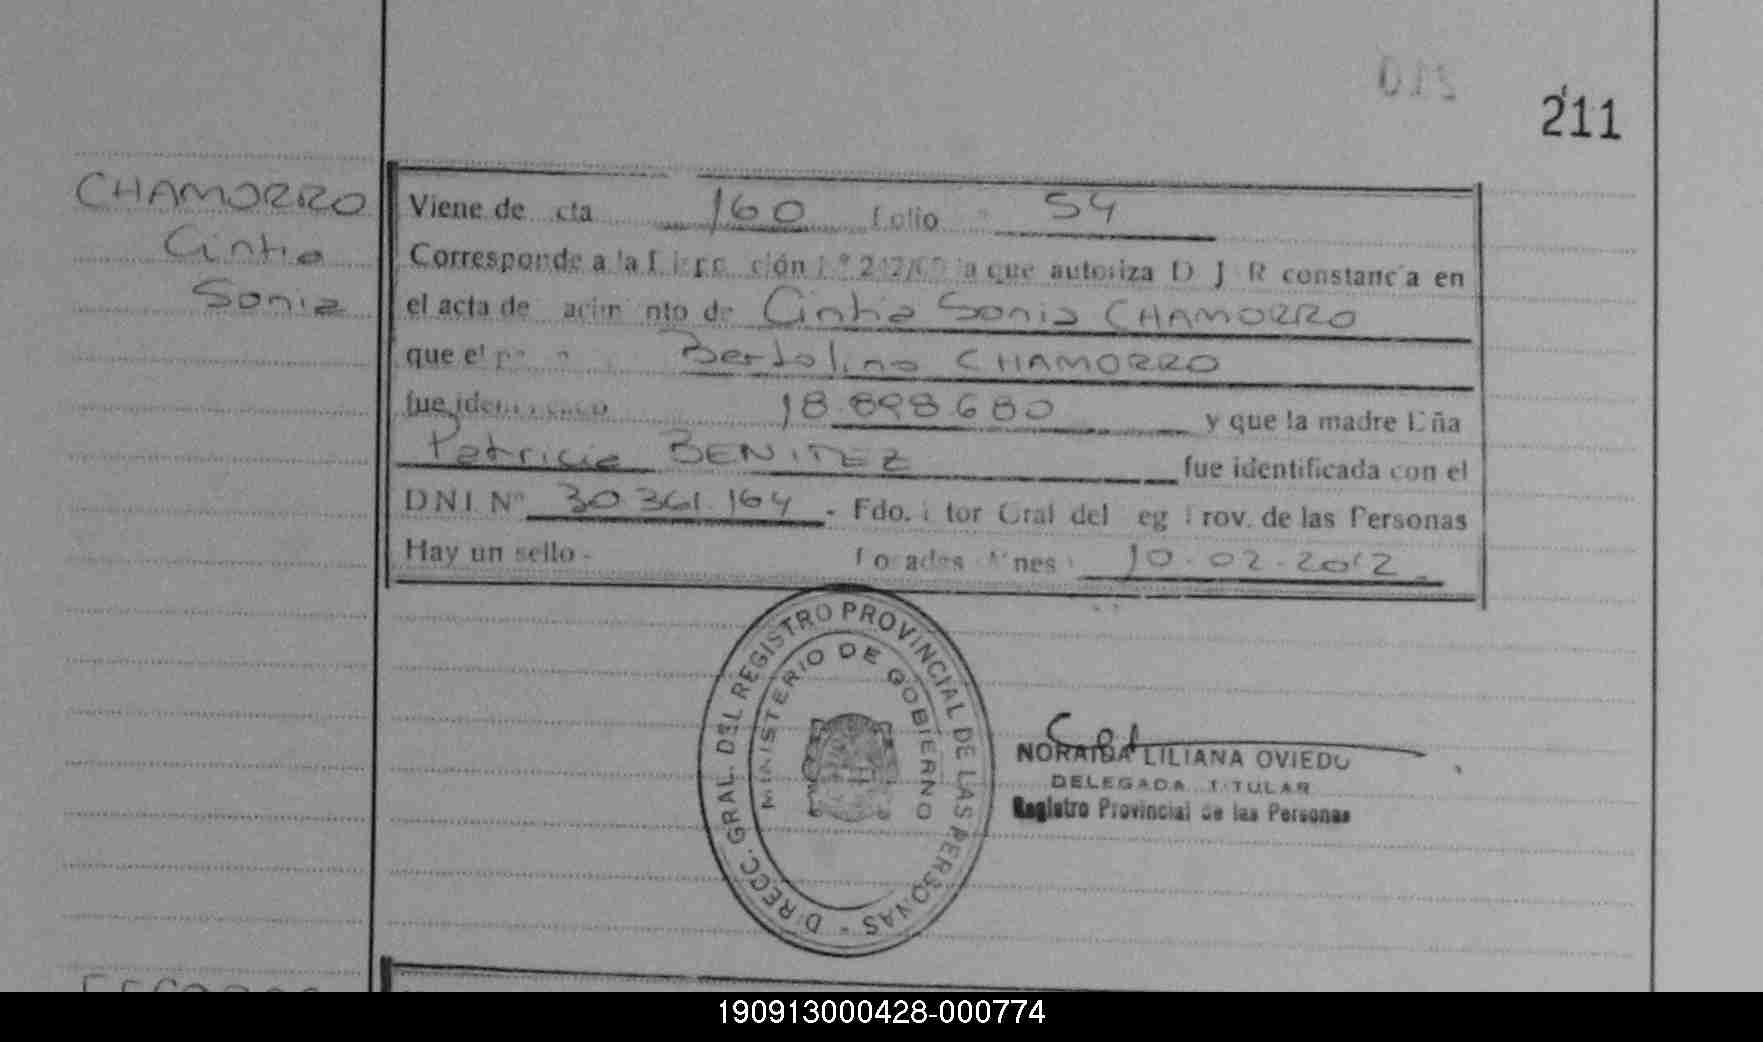 210
211
CHAMORRO
Cintia
Sonia
Viene de cta 160 folio 54
Corresponde a la ción a que autoriza D J R constancia en
el acta de de Cintia Sonia CHAMORRO
que el Bertolino CHAMORRO
fue 18.898.680 y que la madre
Patricia BENITEZ fue identificada con el
DNI Nº 30.361.164 - Fdo. tor Gral del eg Prov. de las Personas
Hay un sello - 10-02-2012
DIRECC. GRAL. DEL REGISTRO PROVINCIAL DE LAS PERSONAS -
MINISTERIO DE GOBIERNO
NORAIDA LILIANA OVIEDO
DELEGADA TITULAR
Registro Provincial de las Personas
190913000428-000774